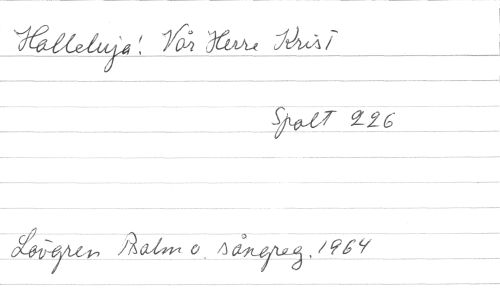 Halleluja! Vår Herre Krist
Spalt 226
Lövgren Psalm o. sångreg. 1964